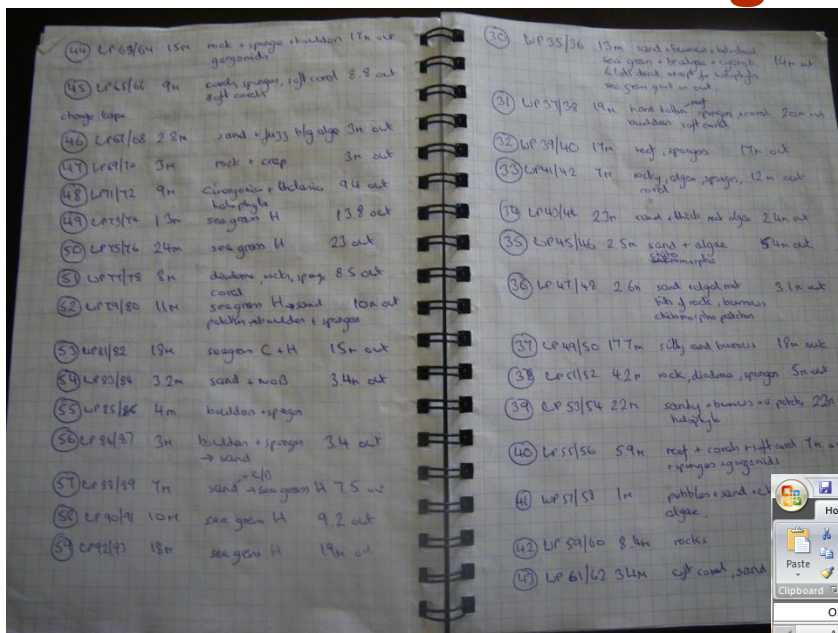 44 WP 63/64 15m rock + sponge + boulders 17m out
gorgonids
45 WP65/66 9m corals, sponges, soft coral 8.8 out
soft corals
change tape
46 WP67/68 2.8m sand + fuzz b/g algae 3m out
47 WP69/70 3m rock + crap 3m out
48 WP71/72 9m 9.4 out
halophyla
49 WP73/74 13m seagrass H 13.8 out
50 WP75/76 24m seagrass H 23 out
51 WP77/78 8m diadema, rocks, sponge 8.5 out
coral
52 WP79/80 11m seagrass H → sand 10m out
patches + boulders + sponges
53 WP81/82 18m seagrass C + H 15m out
54 WP83/84 3.2m sand + 3.4m out
55 WP85/86 4m boulders + sponges
56 WP86/87 3m boulders + sponges 3.4 out
→ sand
57 WP88/89 7m sand → seagrass H 7.5 out
58 WP90/91 10m seagrass H 9.2 out
59 WP92/93 18m seagrass H 19m out
30 WP35/36 13m sand + burrows
sea grass + algae 14m out
halophyla
sea grass out
31 WP37/38 19m hard bottom reef, sponges + coral 20m out
boulders soft coral
32 WP39/40 17m reef, sponges 17m out
33 WP41/42 7m rocky, algae, sponges, 12m out
coral
34 23m sand + thick mat algae 24m out
35 WP45/46 2.5m sand + algae 5.4m out
36 WP47/48 2.6m sand + algal mat 3.1m out
bits of rock, burrows
patches
37 WP49/50 17.7m silty sand burrows 18m out
38 WP51/52 4.2m rock, diadema, sponges 5m out
39 WP53/54 22m sandy + burrows + v. patchy 22m
halophyla
40 WP55/56 5.9m reef + corals + soft coral 7m out
+ sponges + gorgonids
41 WP57/58 1m pebbles + sand
algae.
42 WP59/60 8.4m rocks
43 WP61/62 34m soft coral, sand
Ho
Paste
Clipboard